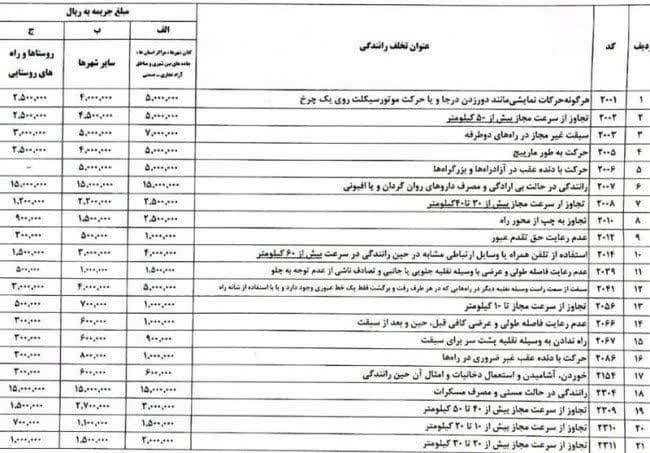 ردیف کد عنوان تخلف رانندگی مبلغ جریمه به ریال
الف ب ج
کلان شهرها ، مراکز استان ها ، جاده های بین شهری و مناطق آزاد تجاری - صنعتی
سایر شهرها
روستاها و راه های روستایی
۱ ۲۰۰۱ هرگونه حرکات نمایشی مانند دورزدن درجا و یا حرکت موتورسیکلت روی یک چرخ ۵,۰۰۰,۰۰۰ ۴,۰۰۰,۰۰۰ ۲,۵۰۰,۰۰۰
۲ ۲۰۰۲ تجاوز از سرعت مجاز بیش از ۵۰ کیلومتر ۵,۰۰۰,۰۰۰ ۴,۵۰۰,۰۰۰ ۲,۵۰۰,۰۰۰
۳ ۲۰۰۳ سبقت غیر مجاز در راه‌های دوطرفه ۷,۰۰۰,۰۰۰ ۵,۰۰۰,۰۰۰ ۳,۰۰۰,۰۰۰
۴ ۲۰۰۵ حرکت به طور مارپیچ ۵,۰۰۰,۰۰۰ ۴,۰۰۰,۰۰۰ ۲,۵۰۰,۰۰۰
۵ ۲۰۰۶ حرکت با دنده عقب در آزادراه‌ها و بزرگراه‌ها ۵,۰۰۰,۰۰۰ ۵,۰۰۰,۰۰۰ -
۶ ۲۰۰۷ رانندگی در حالت بی ارادگی و مصرف داروهای روان گردان و یا افیونی ۱۵,۰۰۰,۰۰۰ ۱۵,۰۰۰,۰۰۰ ۱۵,۰۰۰,۰۰۰
۷ ۲۰۰۸ تجاوز از سرعت مجاز بیش از ۳۰ تا ۴۰ کیلومتر ۲,۵۰۰,۰۰۰ ۲,۲۰۰,۰۰۰ ۱,۲۰۰,۰۰۰
۸ ۲۰۱۰ تجاوز به چپ از محور راه ۲,۵۰۰,۰۰۰ ۱,۵۰۰,۰۰۰ ۹۰۰,۰۰۰
۹ ۲۰۱۲ عدم رعایت حق تقدم عبور ۱,۰۰۰,۰۰۰ ۵۰۰,۰۰۰ ۳۰۰,۰۰۰
۱۰ ۲۰۱۴ استفاده از تلفن همراه یا وسایل ارتباطی مشابه در حین رانندگی در سرعت بیش از ۶۰ کیلومتر ۴,۰۰۰,۰۰۰ ۳,۰۰۰,۰۰۰ ۱,۵۰۰,۰۰۰
۱۱ ۲۰۳۹ عدم رعایت فاصله طولی و عرضی با وسیله نقلیه جلویی یا جانبی و تصادف ناشی از عدم توجه به جلو ۱,۵۰۰,۰۰۰ ۱,۰۰۰,۰۰۰ ۵۰۰,۰۰۰
۱۲ ۲۰۴۱ سبقت از سمت راست وسیله نقلیه دیگر در راه‌هایی که در هر طرف رفت و برگشت فقط یک خط عبوری وجود دارد و یا با استفاده از شانه راه ۵,۰۰۰,۰۰۰ ۴,۰۰۰,۰۰۰ ۳,۰۰۰,۰۰۰
۱۳ ۲۰۵۶ تجاوز از سرعت مجاز تا ۱۰ کیلومتر ۱,۰۰۰,۰۰۰ ۷۰۰,۰۰۰ ۵۰۰,۰۰۰
۱۴ ۲۰۶۶ عدم رعایت فاصله طولی و عرضی کافی قبل، حین و بعد از سبقت ۱,۰۰۰,۰۰۰ ۶۰۰,۰۰۰ ۳۰۰,۰۰۰
۱۵ ۲۰۶۷ راه ندادن به وسیله نقلیه پشت سر برای سبقت ۹۰۰,۰۰۰ ۶۰۰,۰۰۰ ۳۰۰,۰۰۰
۱۶ ۲۰۸۶ حرکت با دنده عقب غیر ضروری در راه‌ها ۱,۰۰۰,۰۰۰ ۸۰۰,۰۰۰ ۳۰۰,۰۰۰
۱۷ ۲۱۵۴ خوردن، آشامیدن و استعمال دخانیات و امثال آن حین رانندگی ۶۰۰,۰۰۰ ۶۰۰,۰۰۰ ۳۰۰,۰۰۰
۱۸ ۲۳۰۴ رانندگی در حالت مستی و مصرف مسکرات ۱۵,۰۰۰,۰۰۰ ۱۵,۰۰۰,۰۰۰ ۱۵,۰۰۰,۰۰۰
۱۹ ۲۳۰۹ تجاوز از سرعت مجاز بیش از ۴۰ تا ۵۰ کیلومتر ۳,۰۰۰,۰۰۰ ۲,۷۰۰,۰۰۰ ۱,۵۰۰,۰۰۰
۲۰ ۲۳۱۰ تجاوز از سرعت مجاز بیش از ۱۰ تا ۲۰ کیلومتر ۱,۵۰۰,۰۰۰ ۱,۱۰۰,۰۰۰ ۷۰۰,۰۰۰
۲۱ ۲۳۱۱ تجاوز از سرعت مجاز بیش از ۲۰ تا ۳۰ کیلومتر ۲,۰۰۰,۰۰۰ ۱,۵۰۰,۰۰۰ ۱,۰۰۰,۰۰۰